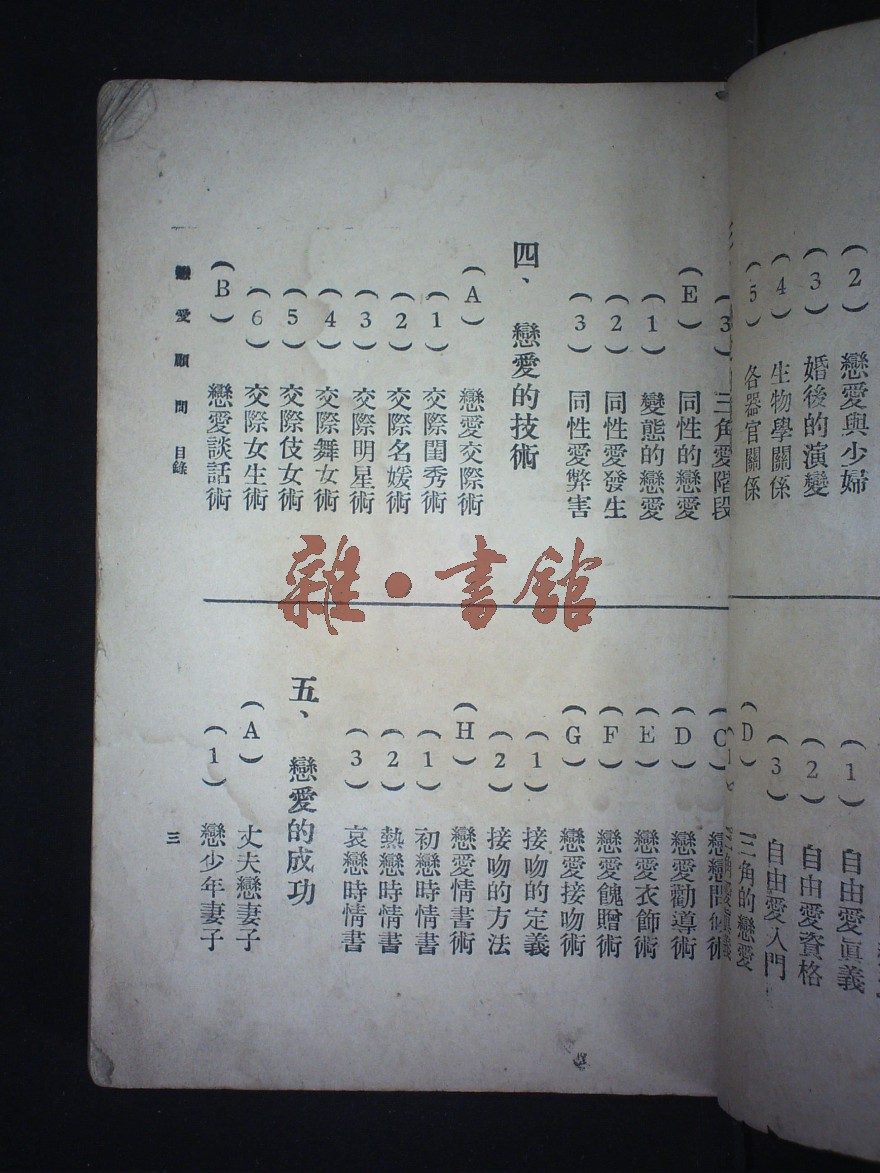 (2)　戀愛與少婦
(3)　婚後的演變
(4)　生物學關係
(5)　各器官關係
(1)　自由愛眞義
(2)　自由愛資格
(3)　自由愛入門
(D)　三角的戀愛
(3)　三角愛階段
(E)　同性的戀愛
(1)　變態的戀愛
(2)　同性愛發生
(3)　同性愛弊害
四、　戀愛的技術
(A)　戀愛交際術
(1)　交際閨秀術
(2)　交際名媛術
(3)　交際明星術
(4)　交際舞女術
(5)　交際伎女術
(6)　交際女生術
(B)　戀愛談話術
(C)
(D)　戀愛勸導術
(E)　戀愛衣飾術
(F)　戀愛餽贈術
(G)　戀愛接吻術
(1)　接吻的定義
(2)　接吻的方法
(H)　戀愛情書術
(1)　初戀時情書
(2)　熱戀時情書
(3)　哀戀時情書
五、　戀愛的成功
(A)　丈夫戀妻子
(1)　戀少年妻子
戀愛顧問　目錄
三
雜·書館